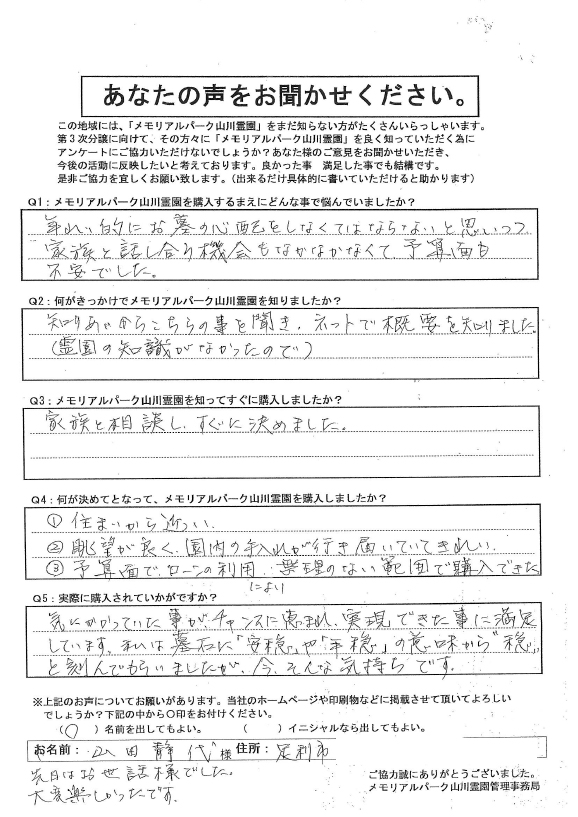 あなたの声をお聞かせください。
この地域には、「メモリアルパーク山川霊園」をまだ知らない方がたくさんいらっしゃいます。
第3次分譲に向けて、その方々に「メモリアルパーク山川霊園」を良く知っていただく為に
アンケートにご協力いただけないでしょうか？あなた様のご意見をお聞かせいただき、
今後の活動に反映したいと考えております。良かった事　満足した事でも結構です。
是非ご協力を宜しくお願い致します。（出来るだけ具体的に書いていただけると助かります）
Q1：メモリアルパーク山川霊園を購入するまえにどんな事で悩んでいましたか？
年れい的にお墓の心配をしなくてはならないと思いつつ
家族と話し合う機会もなかなかなくて、予算面も
不安でした。
Q2：何がきっかけでメモリアルパーク山川霊園を知りましたか？
知りあいからこちらの事を聞き、ネットで概要を知りました。
（霊園の知識がなかったので）
Q3：メモリアルパーク山川霊園を知ってすぐに購入しましたか？
家族と相談し、すぐに決めました。
Q4：何が決めてとなって、メモリアルパーク山川霊園を購入しましたか？
① 住まいから近い。
② 眺望が良く、園内の手入れが行き届いていてきれい。
③ 予算面で、ローンの利用により 無理のない範囲で購入できた
Q5：実際に購入されていかがですか？
気にかかっていた事がチャンスに恵まれ、実現できた事に満足
しています。私は墓石に「安穏」や「平穏」の意味から“穏”
と刻んでもらいましたが、今、そんな気持ちです。
※上記のお声についてお願いがあります。当社のホームページや印刷物などに掲載させて頂いてよろしい
でしょうか？下記の中から〇印をお付けください。
（〇）名前を出してもよい。　（　）イニシャルなら出してもよい。
お名前： 田 静代 様 住所： 足利市
先日はお世話様でした。
大変楽しかったです。
ご協力誠にありがとうございました。
メモリアルパーク山川霊園管理事務局